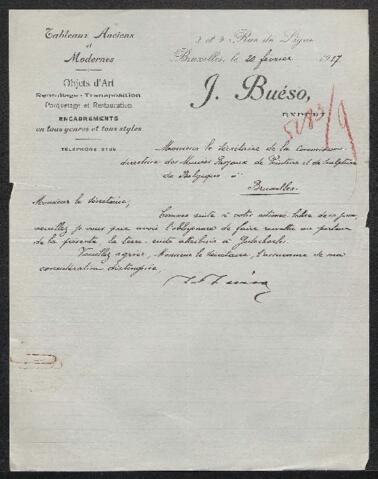 Tableaux Anciens
et
Modernes
Objets d'Art
Rentoilage-Transposition
Parquetage et Restauration
ENCADREMENTS
en tous genres et tous styles
TÉLÉPHONE
2 et 4 Rue du
Bruxelles, le 20 février 1917
J. Buéso,
EXPERT
Monsieur le Secrétaire de la Commission
directrice des Musées Royaux de Peinture et de Sculpture
de Belgique à
Bruxelles.
Monsieur le Secrétaire,
Comme suite à votre lettre de ce jour
veuillez je vous prie avoir l'obligeance de faire remettre au porteur
de la présente la terre-cuite attribuée à Godecharle.
Veuillez agréer, Monsieur le Secrétaire, l'assurance de ma
considération distinguée.